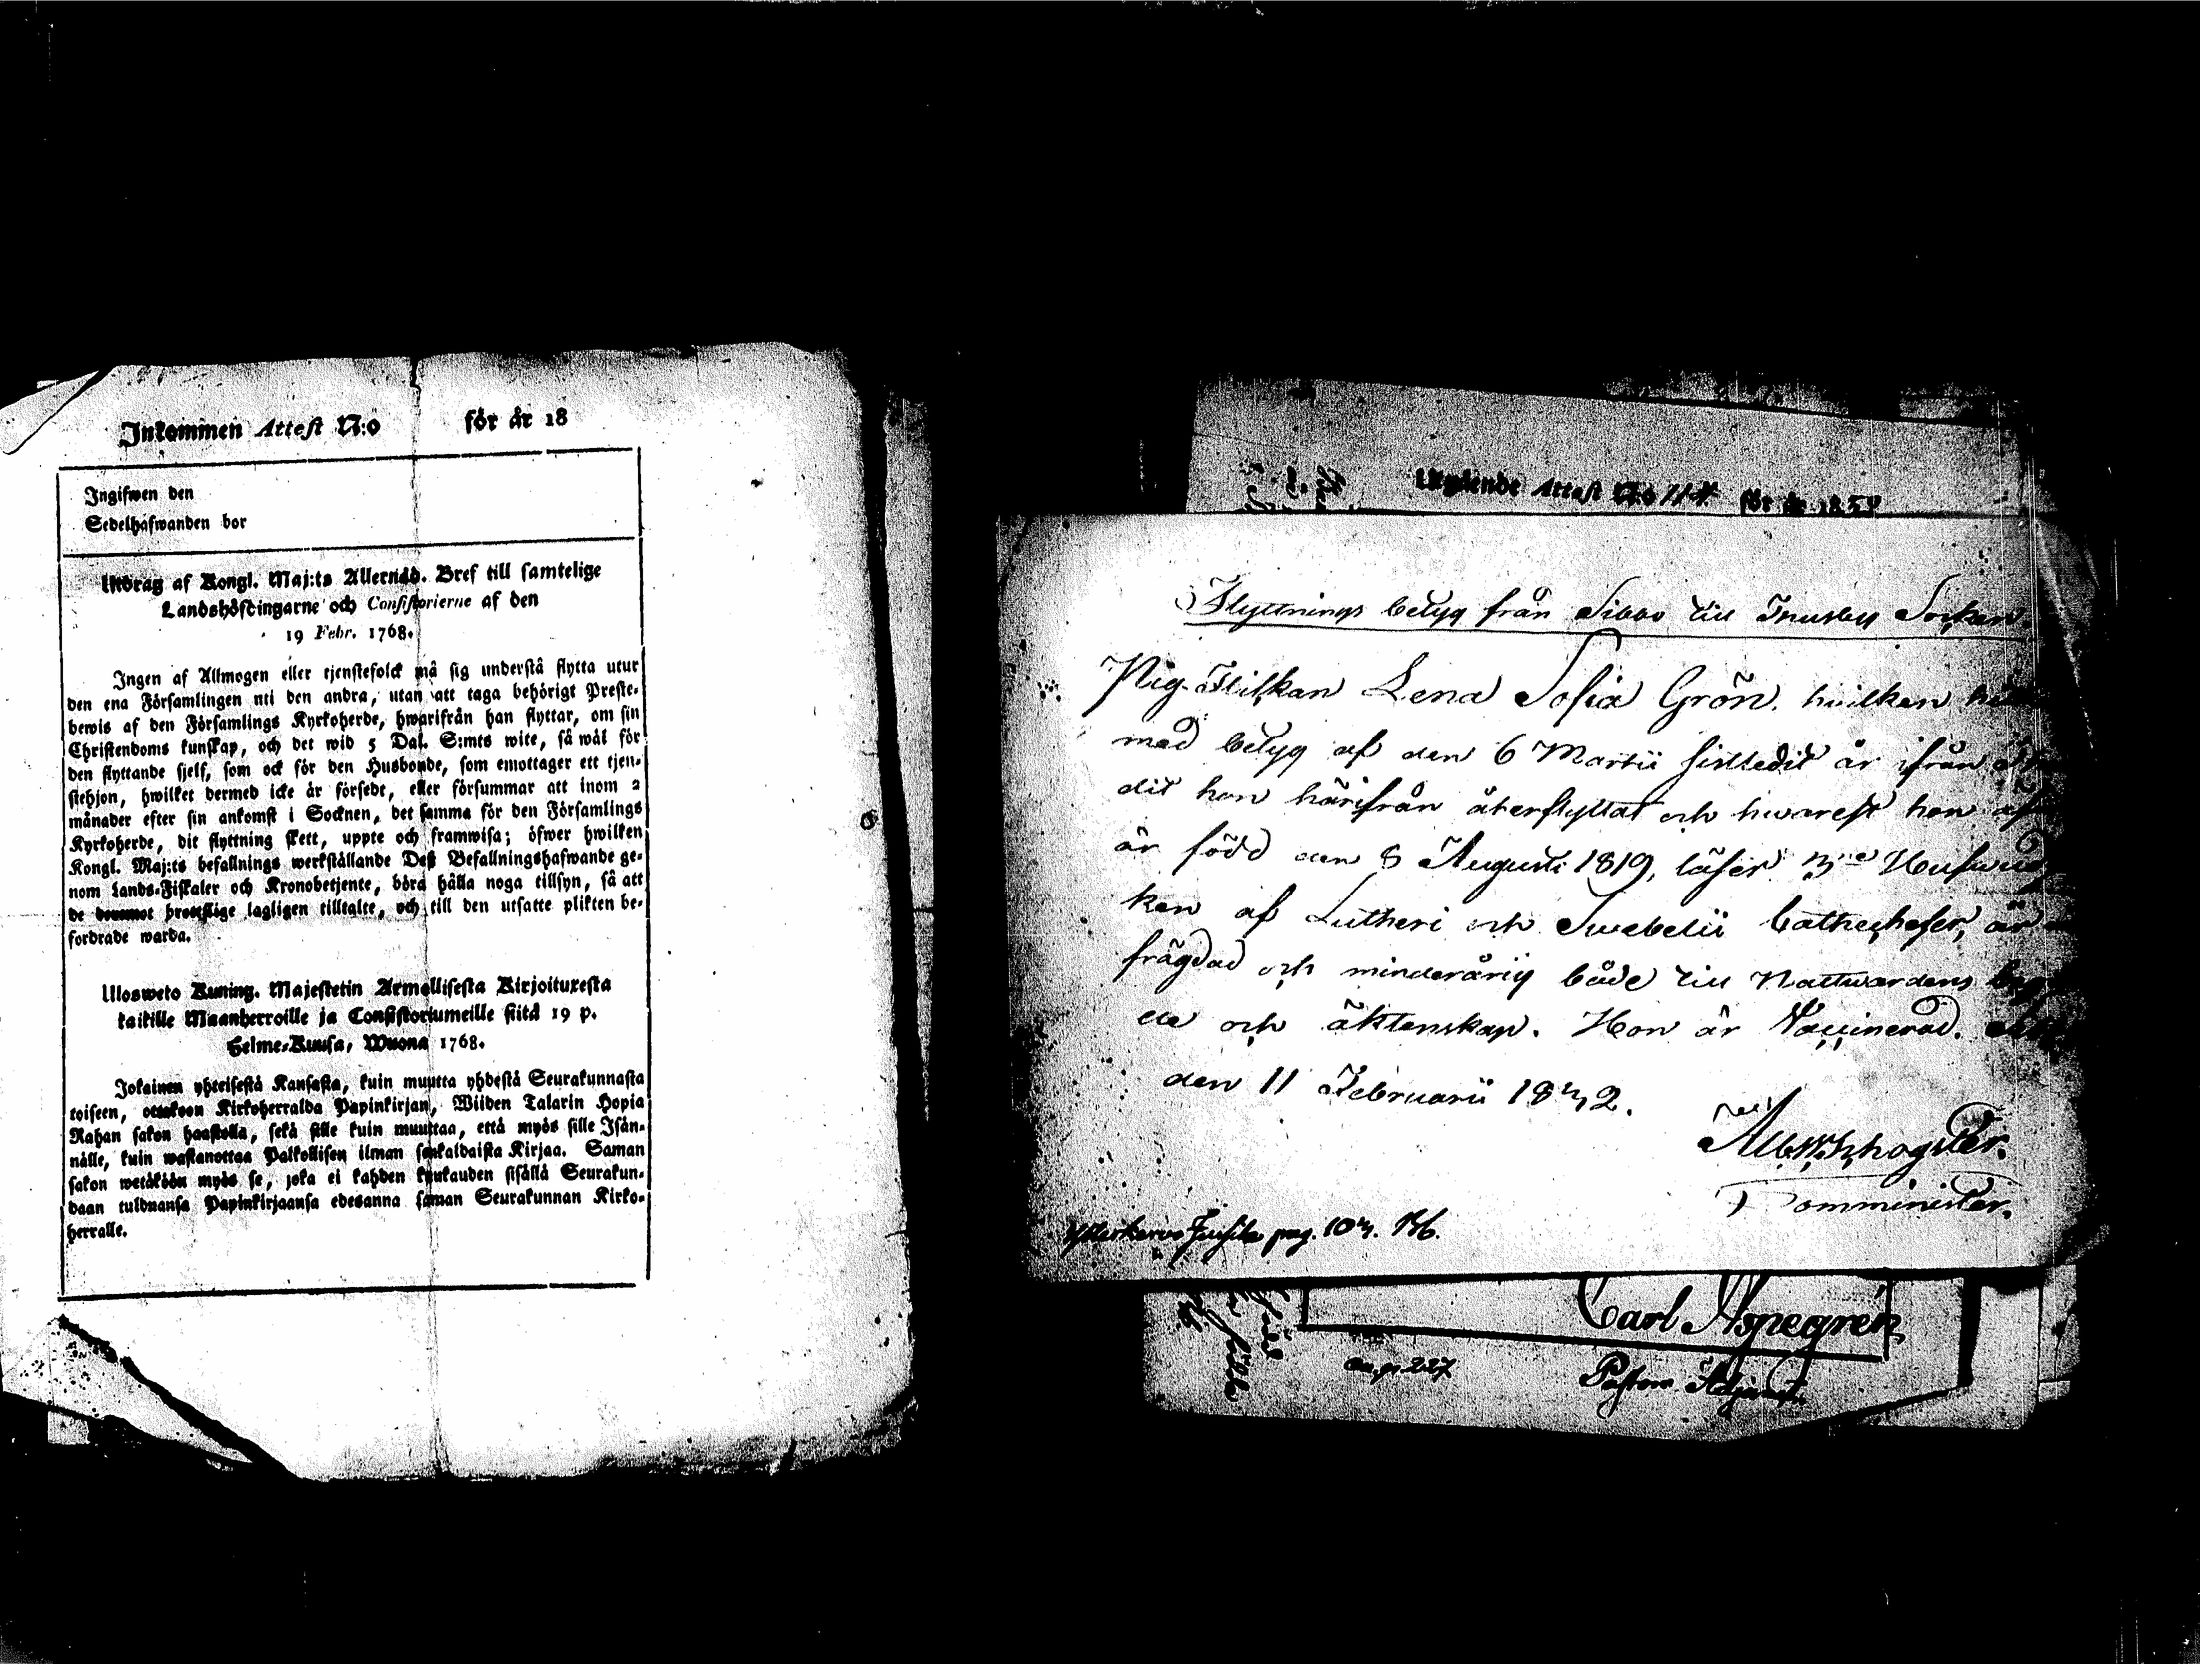 Inkommen Attest N:o för år 18
Ingifwen den
Sedelhafwanden bor
Utdrag af Kongl. Maj:ts Allernåd. Bref till samtelige
Landshöfdingarne och Consistorierne af den
19 Febr. 1768.
Ingen af Allmogen eller tjenstefolck må sig understå flytta utur
den ena Församlingen uti den andra, utan att taga behörigt Preste-
bewis af den Församlings Kyrkoherde, hwarifrån han flyttar, om sin
Christendoms kunskap, och det wid 5 Dal. S:mts wite, så wäl för
den flyttande sjelf, som ock för den Husbonde, som emottager ett tjen-
stehjon, hwilket dermed icke är försedt, eller försummar att inom 2
månader efter sin ankomst i Socknen, det samma för den Församlings
Kyrkoherde, dit flyttning skett, uppte och framwisa; öfwer hwilken
Kongl. Maj:ts befallnings werkställande Deß Befallningshafwande ge-
nom Lands-Fiskaler och Kronobetjente, böra hålla noga tillsyn, så att
de deremot brottslige lagligen tilltalte, och till den utsatte plikten be-
fordrade warda.
Ulosweto Kuning. Majestetin Armollisesta Kirjoituxesta
kaikille Maanherroille ja Consistoriumeille siitä 19 p.
Helme-Kuusa, Wuona 1768.
Jokainen yhteisestä Kansasta, kuin muutta yhdestä Seurakunnasta
toiseen, ottakoon Kirkoherralda Papinkirjan, Wiiden Talarin Hopia
Rahan sakon haastolla, sekä sille kuin muuttaa, että myös sille Isän-
nälle, kuin wastanottaa Palkollisen ilman senkaldaista Kirjaa. Saman
sakon wetäköön myös se, joka ei kahden kuukauden sisällä Seurakun-
daan tulduansa Papinkirjaansa edesanna saman Seurakunnan Kirko-
herralle.
Utgående Attest No 114 för år 1858
Flyttnings betyg från Sibbo till Tnusby Socken
Pig-Flickan Lena Sofia Grön, hvilken
med betyg af den 6 Martii sistledit år ifrån
dit hon härifrån återflyttat och hwarest hon
är född den 8 Augusti 1819, läser 3ne Hufwud
ken af Lutheri och Swebelii Catheeheser, är
frägdad och minderårig både till Nattwardens
de och äktenskap. Hon är Vaccinerad.
den 11 Februarii 1832.
Comminister.
pag. 103.
Carl Aspegrén
Pastors Adjunct.
pag. 227